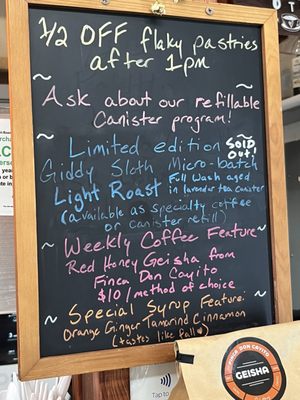 1/2 OFF flaky pastries
after 1pm
Ask about our refillable
Canister program!
Limited edition SOLD OUT!
Giddy Sloth Micro-batch
Light Roast Full Wash aged
in lavender tea canister
(available as specialty coffee
or canister refill)
Weekly Coffee Feature
Red Honey Geisha from
Finca Don Cayito
$10/method of choice
Special Syrup Feature:
Orange Ginger Tamarind Cinnamon
(tastes like fall)
FINCA DON CAYITO
GEISHA
GEISHA